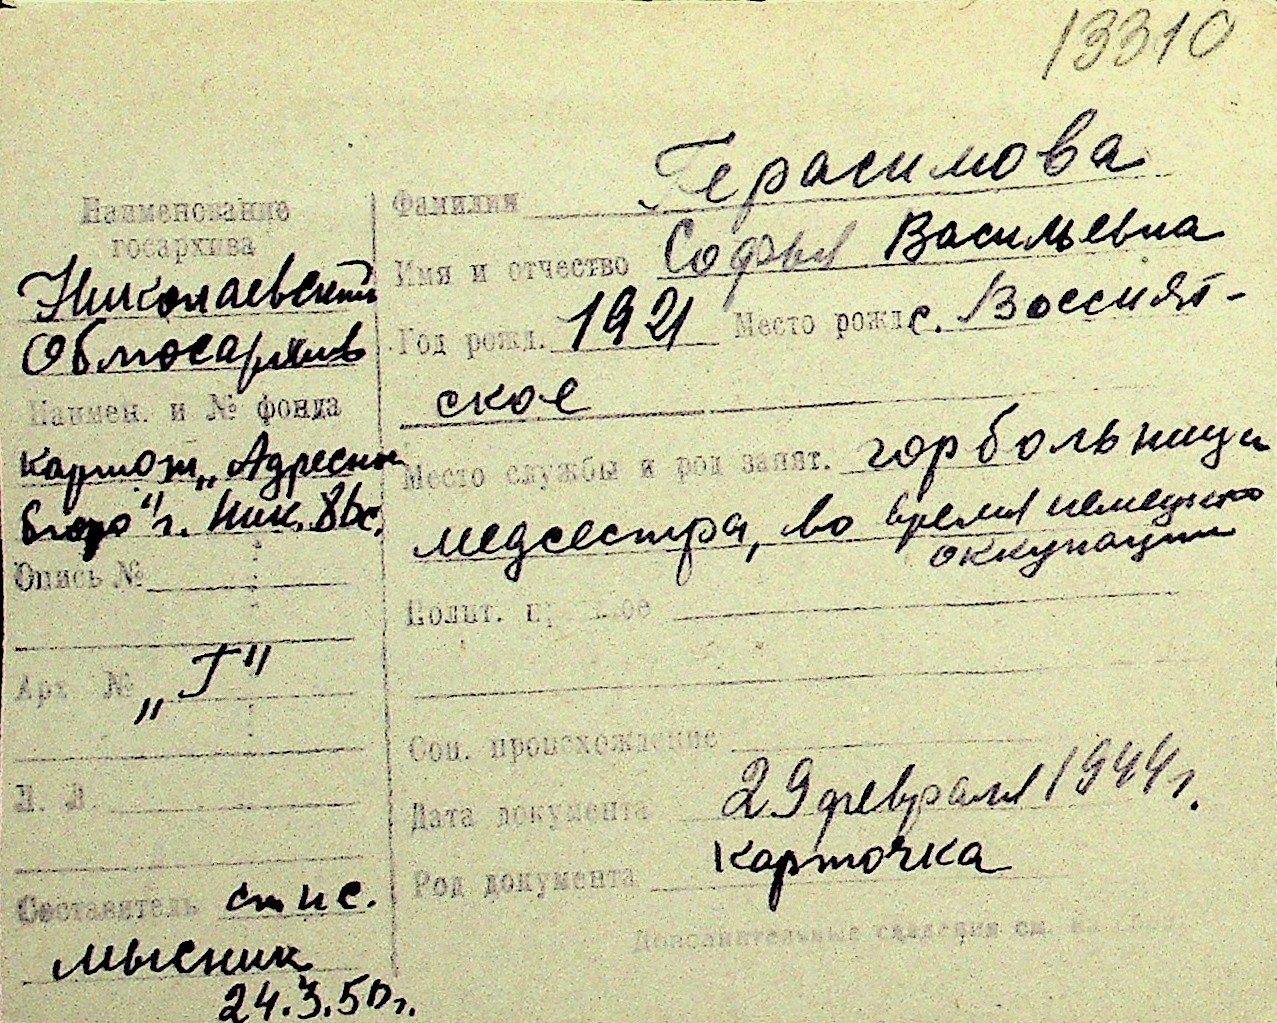 13310
Наименование
госархива
Николаевский
Облгосархив
Наимен. и № фонда
картот. „Адресн.
бюро" г. Ник.
Опись №
Арх №
„Г"
Л. Л.
Составитель ст н с.
Мысник
24.3.50г.
Фамилия Герасимова
Имя и отчество Софья Васильевна
Год рожд. 1921 Место рожд с. Воссият-
ское
Место службы и род занят. горбольница
медсестра, во время немецкой
оккупации
Полит. прошлое
Соц. происхождение
Дата документа 29 февраля 1944 г.
Род документа карточка
Дополнительные сведения см. на